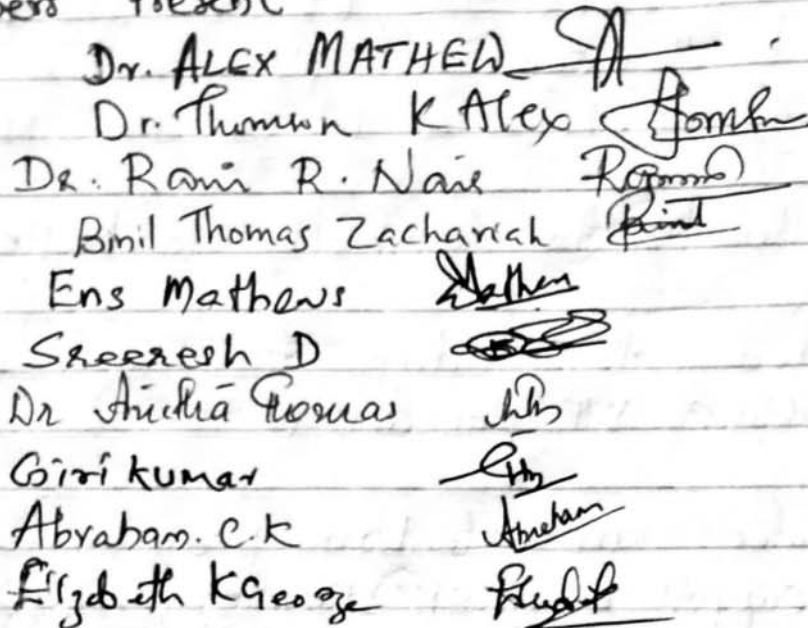 Present
Dr. ALEX MATHEW
Dr. Thomson K Alex
Dr. Rani R. Nair
Binil Thomas Zachariah
Ens Mathews
Sreeresh D
Dr Anitha Thomas
Giri kumar
Abraham. C. K Abraham
Elizabeth K George